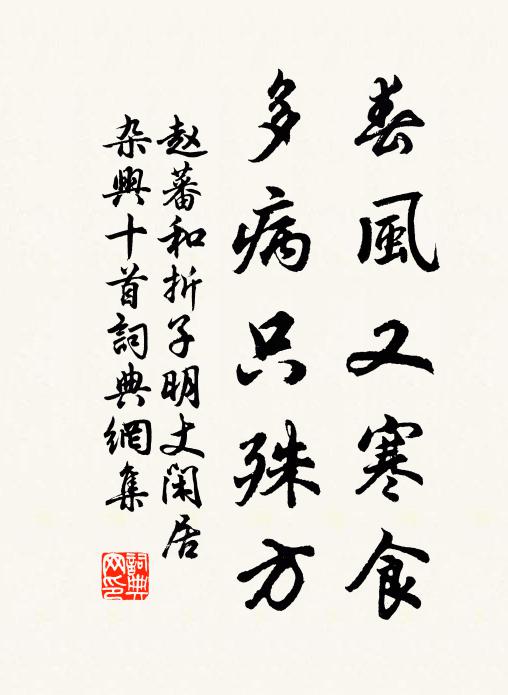 春風又寒食
多病只殊方
赵蕃和折子明丈闲居
杂興十首詞典網集
詞典
网印